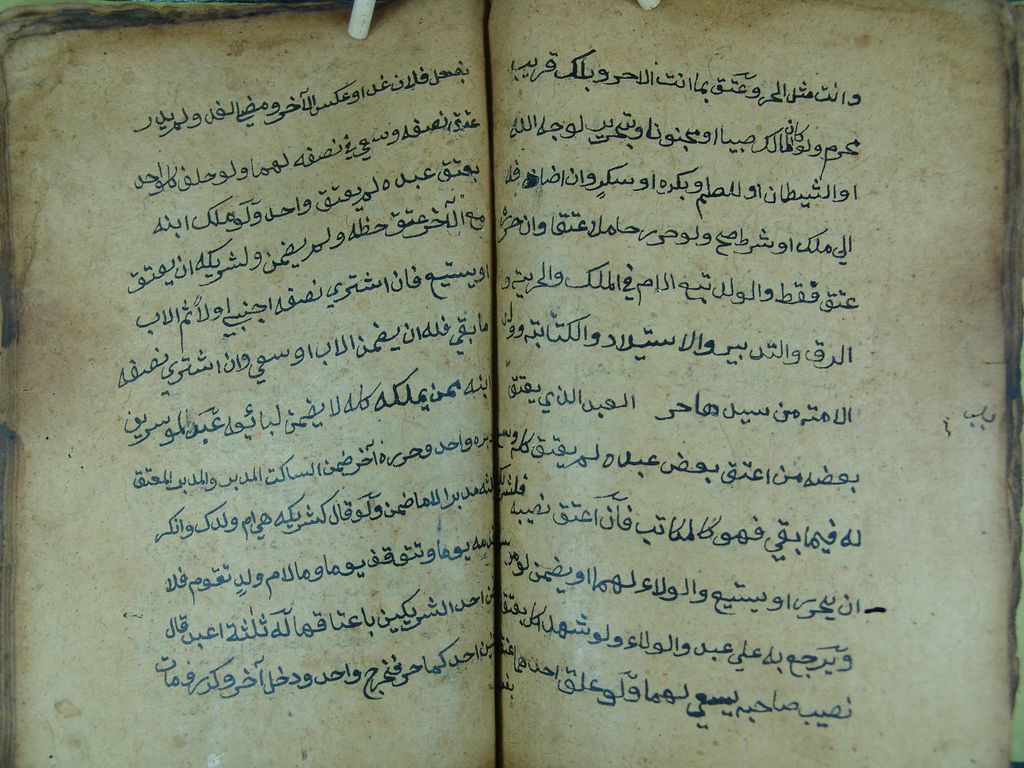 وانت مثل الحر وعتق بما انت الا حر وبملك قريب
محرم ولو كان المالك صبيا او مجنونا وبتحرير لوجه الله
او الشيطان او للصنم وبكره او سكر وان اضافه
الي ملك او شرط صح ولو حرر حاملا عتقا وان حرره
عتق فقط والولد تبع الام في الملك والحرية و
الرق والتدبير والاستيلاد والكتابة وولد
الامة من سيدها حر العبد الذي يعتق
باب
بعضه من اعتق بعض عبده لم يعتق كله وسعي
له فيما بقي فهو كالمكاتب فان اعتق نصيبه فلشريكه
ان يحرر او يستسع والولاء لهما او يضمن لو موسرا
ويرجع به علي عبد والولاء ولو شهد كل يعتق
نصيب صاحبه يسعي لهما ولو علق احدهما عتقه
بفعل
بفعل فلان غدا وعكس الآخر ومضي الغد ولم يدر
عتق نصفه وسعي في نصفه لهما ولو حلف كل واحد
بعتق عبده لم يعتق واحد ولو ملك ابنه
مع الآخر عتق حظه ولم يضمن ولشريكه ان يعتق
او يستسع فان اشتري نصفه اجنبي اولا ثم الاب
ما بقي فله ان يضمن الاب او سعي وان اشتري نصفه
ابنه ممن يملكه كله لا يضمن لبائعه عبد لموسرين
دبره واحد وحرره آخر ضمن الساكت المدبر والمدبر المعتق
ثلثه مدبرا لا ما ضمن ولو قال لشريكه هي ام ولدك وانكر
تخدمه يوما وتتوقف يوما وما لام ولد تقوم فلا
يضمن احد الشريكين باعتاقها له ثلثة اعبد قال
لاثنين احدكما حر فخرج واحد ودخل آخر وكرر فمات